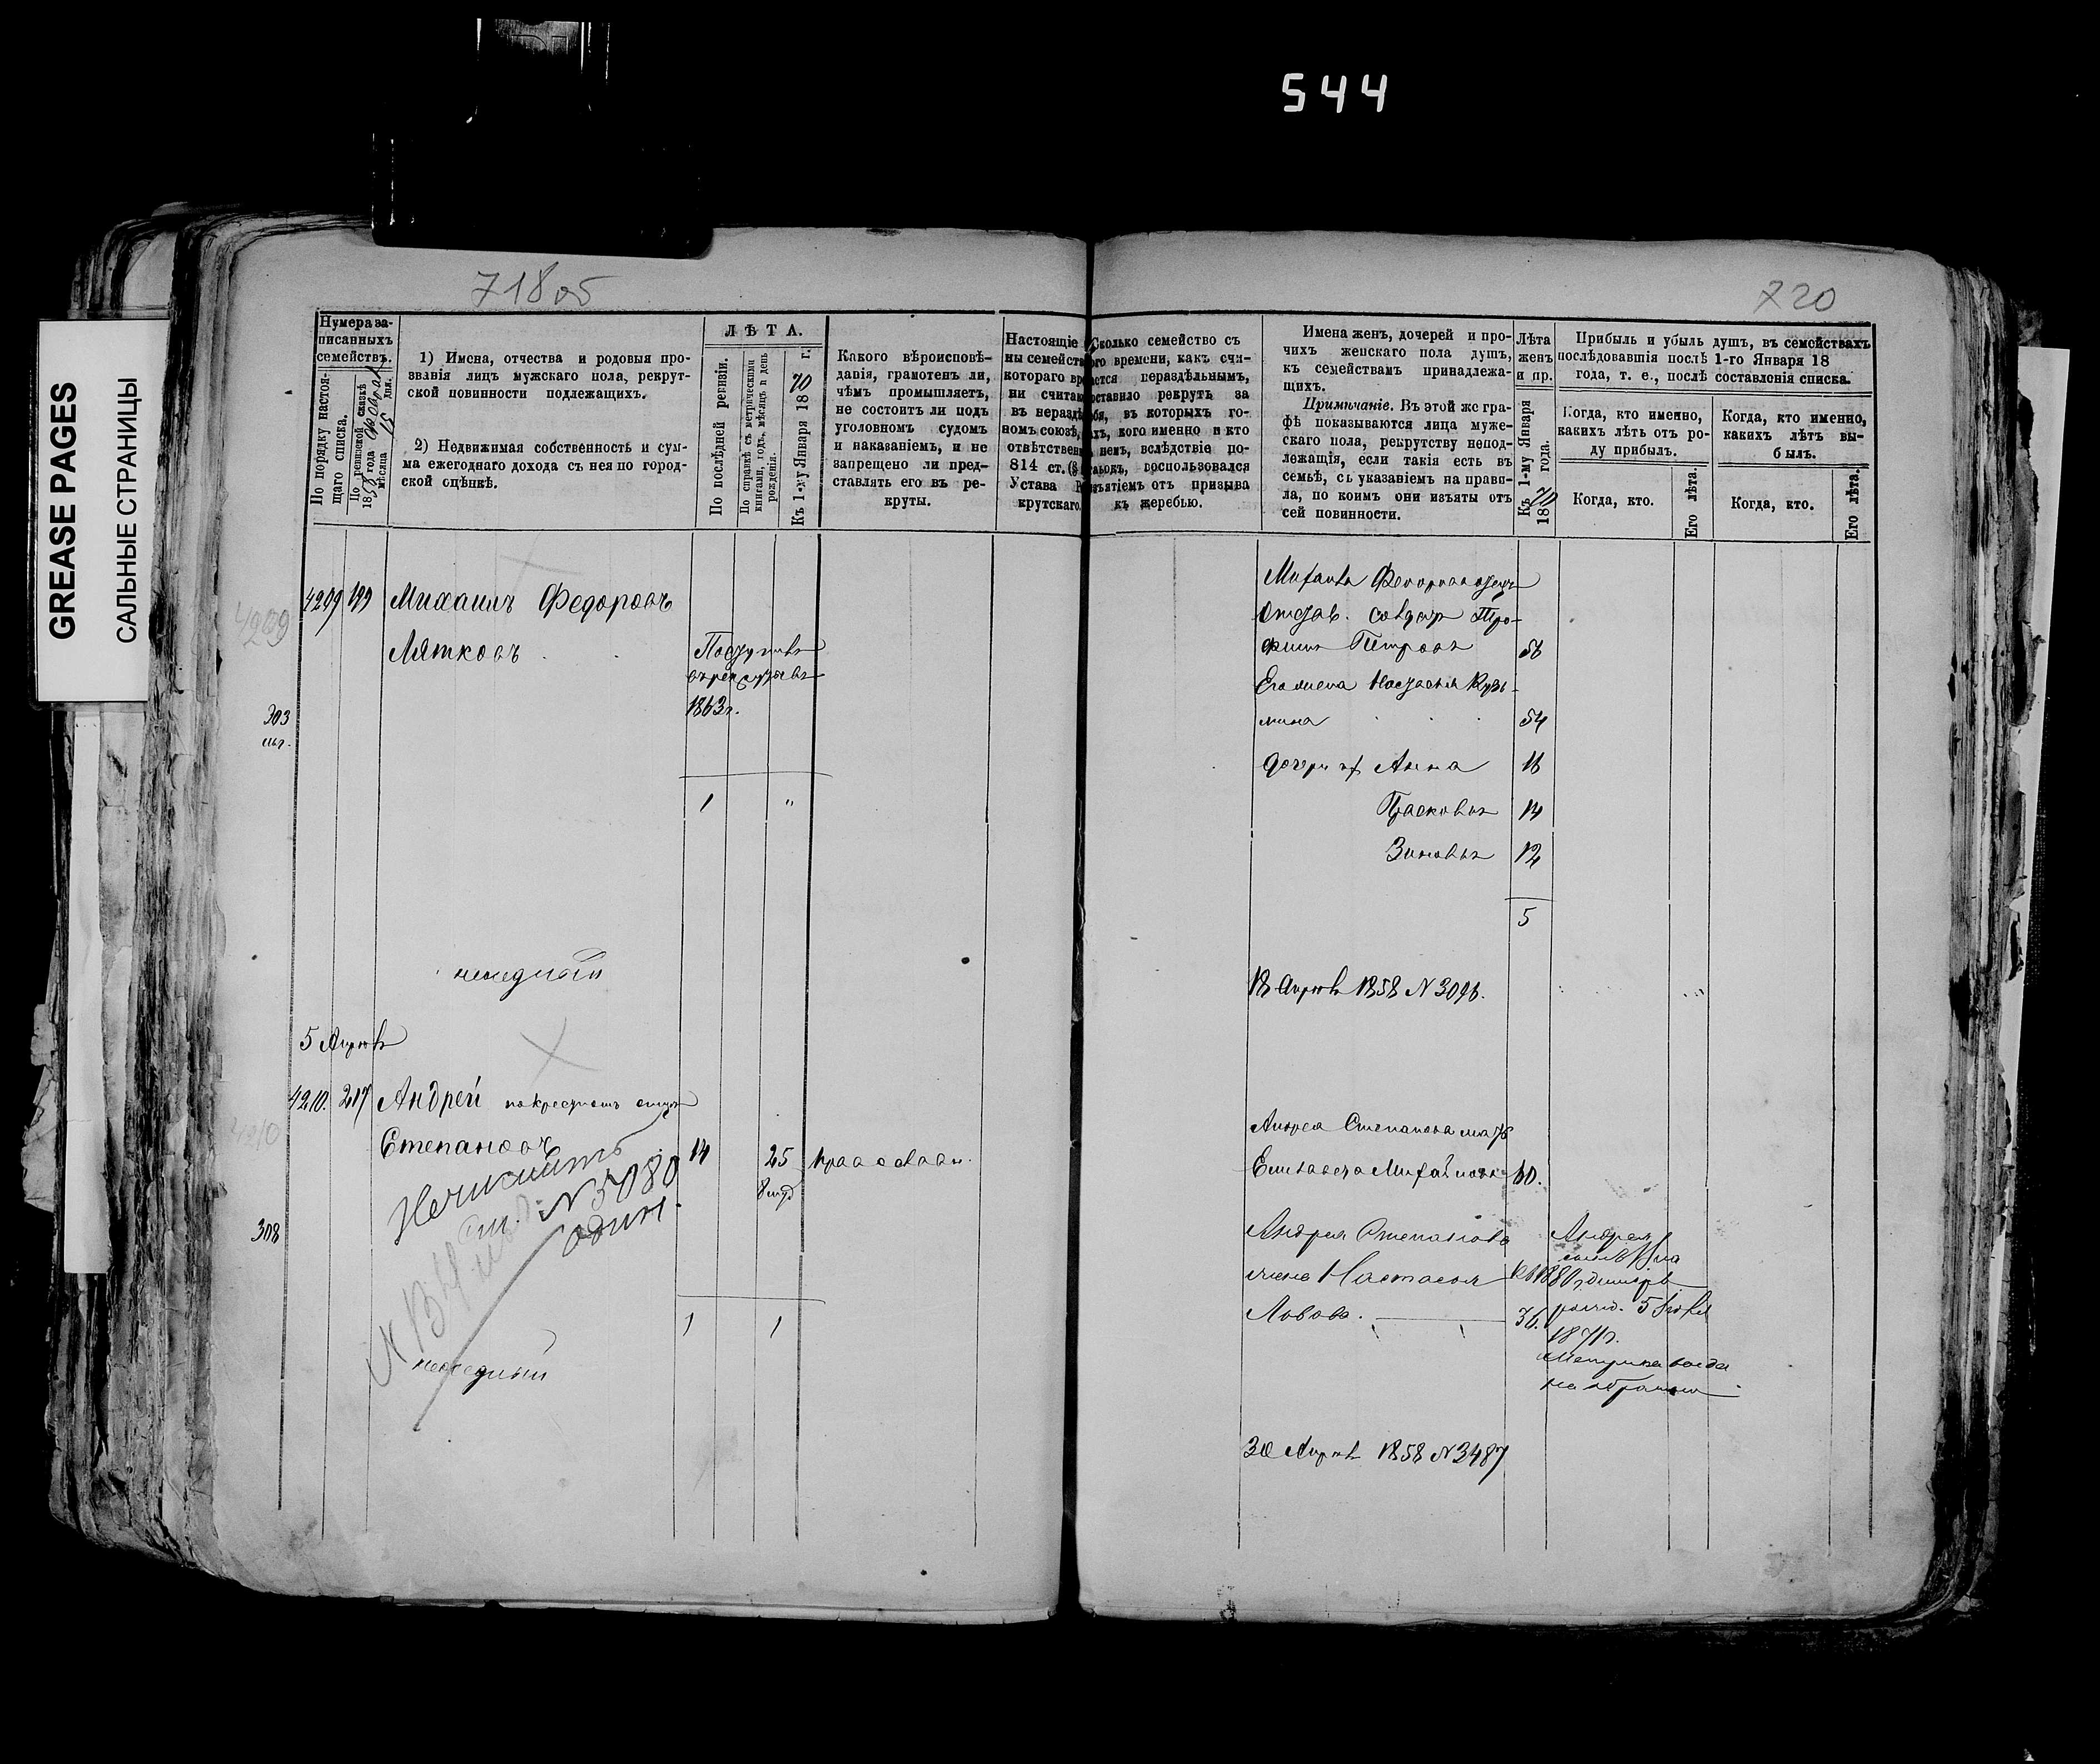 544
GREASE PAGES
САЛЬНЫЕ СТРАНИЦЫ
718 об
720
Нумера за-
писанныхъ
семействъ.
По порядку настоя-
щаго списка.
По ревизской сказкѣ
1858 года Февраля
мѣсяца 15 дня.
1) Имена, отчества и родовыя про-
званія лицъ мужскаго пола, рекрут-
ской повинности подлежащихъ.
2) Недвижимая собственность и сум-
ма ежегоднаго дохода съ нея по город-
ской оцѣнкѣ.
ЛѢТА.
По послѣдней ревизіи.
По справкѣ съ метрическими
книгами, годъ, мѣсяцъ и день
рожденія.
Къ 1-му Января 1870 г.
Какого вѣроисповѣ-
данія, грамотенъ ли,
чѣмъ промышляетъ,
не состоитъ ли подъ
уголовномъ судомъ
и наказаніемъ, и не
запрещено ли пред-
ставлять его въ ре-
круты.
Настоящіе
ны семейств
котораго вр
ни считаю
въ неразд
номъ союзѣ,
отвѣтствен
814 ст. (§
Устава
крутскаго.
Сколько семейство съ
ого времени, какъ счи-
ается нераздѣльнымъ,
оставило рекрутъ за
бя, въ которыхъ го-
ахъ, кого именно и кто
немъ, вслѣдствіе по-
воспользовался
изъятіемъ отъ призыва
къ жеребью.
Имена женъ, дочерей и про-
чихъ женскаго пола душъ,
къ семействамъ принадлежа-
щихъ.
Примѣчаніе. Въ этой же гра-
фѣ показываются лица муже-
скаго пола, рекрутству непод-
лежащія, если такія есть въ
семьѣ, съ указаніемъ на прави-
ла, по коимъ они изъяты отъ
сей повинности.
Лѣта
женъ
и пр.
Къ 1-му Января
1870 года.
Прибыль и убыль душъ, въ семействахъ
послѣдовавшія послѣ 1-го Января 18
года, т. е., послѣ составленія списка.
Когда, кто именно,
какихъ лѣтъ отъ ро-
ду прибылъ.
Когда, кто именно,
какихъ лѣтъ вы-
былъ.
Когда, кто.
Его лѣта.
Когда, кто.
Его лѣта.
4209
4209 199 Михаилъ Федоровъ
Мятковъ
1863 г.
303
1 "
Михаила Федорова отецъ
Отстав. солдат Тро-
фимъ Петровъ 58
Его жена Настасья Кузь-
мина 54
дочери их Анна 16
Прасковья 14
Зиновья 12
5
18 Апрѣля 1858 № 3096.
5 Апрѣля
4210
4210. 217 Андрей по крестномъ отцѣ
Степановъ 14 25 православн.
№ 5080
один.
308
1 1
Андрея Степанова мать
Елизавета Михайлова 60.
Андрея Степанова
жена Настасья
Львова. 36.
Андрея
сынъ
рожд. 5 Іюля
1871 г.
Метрика
30 Апрѣля 1858 № 3487